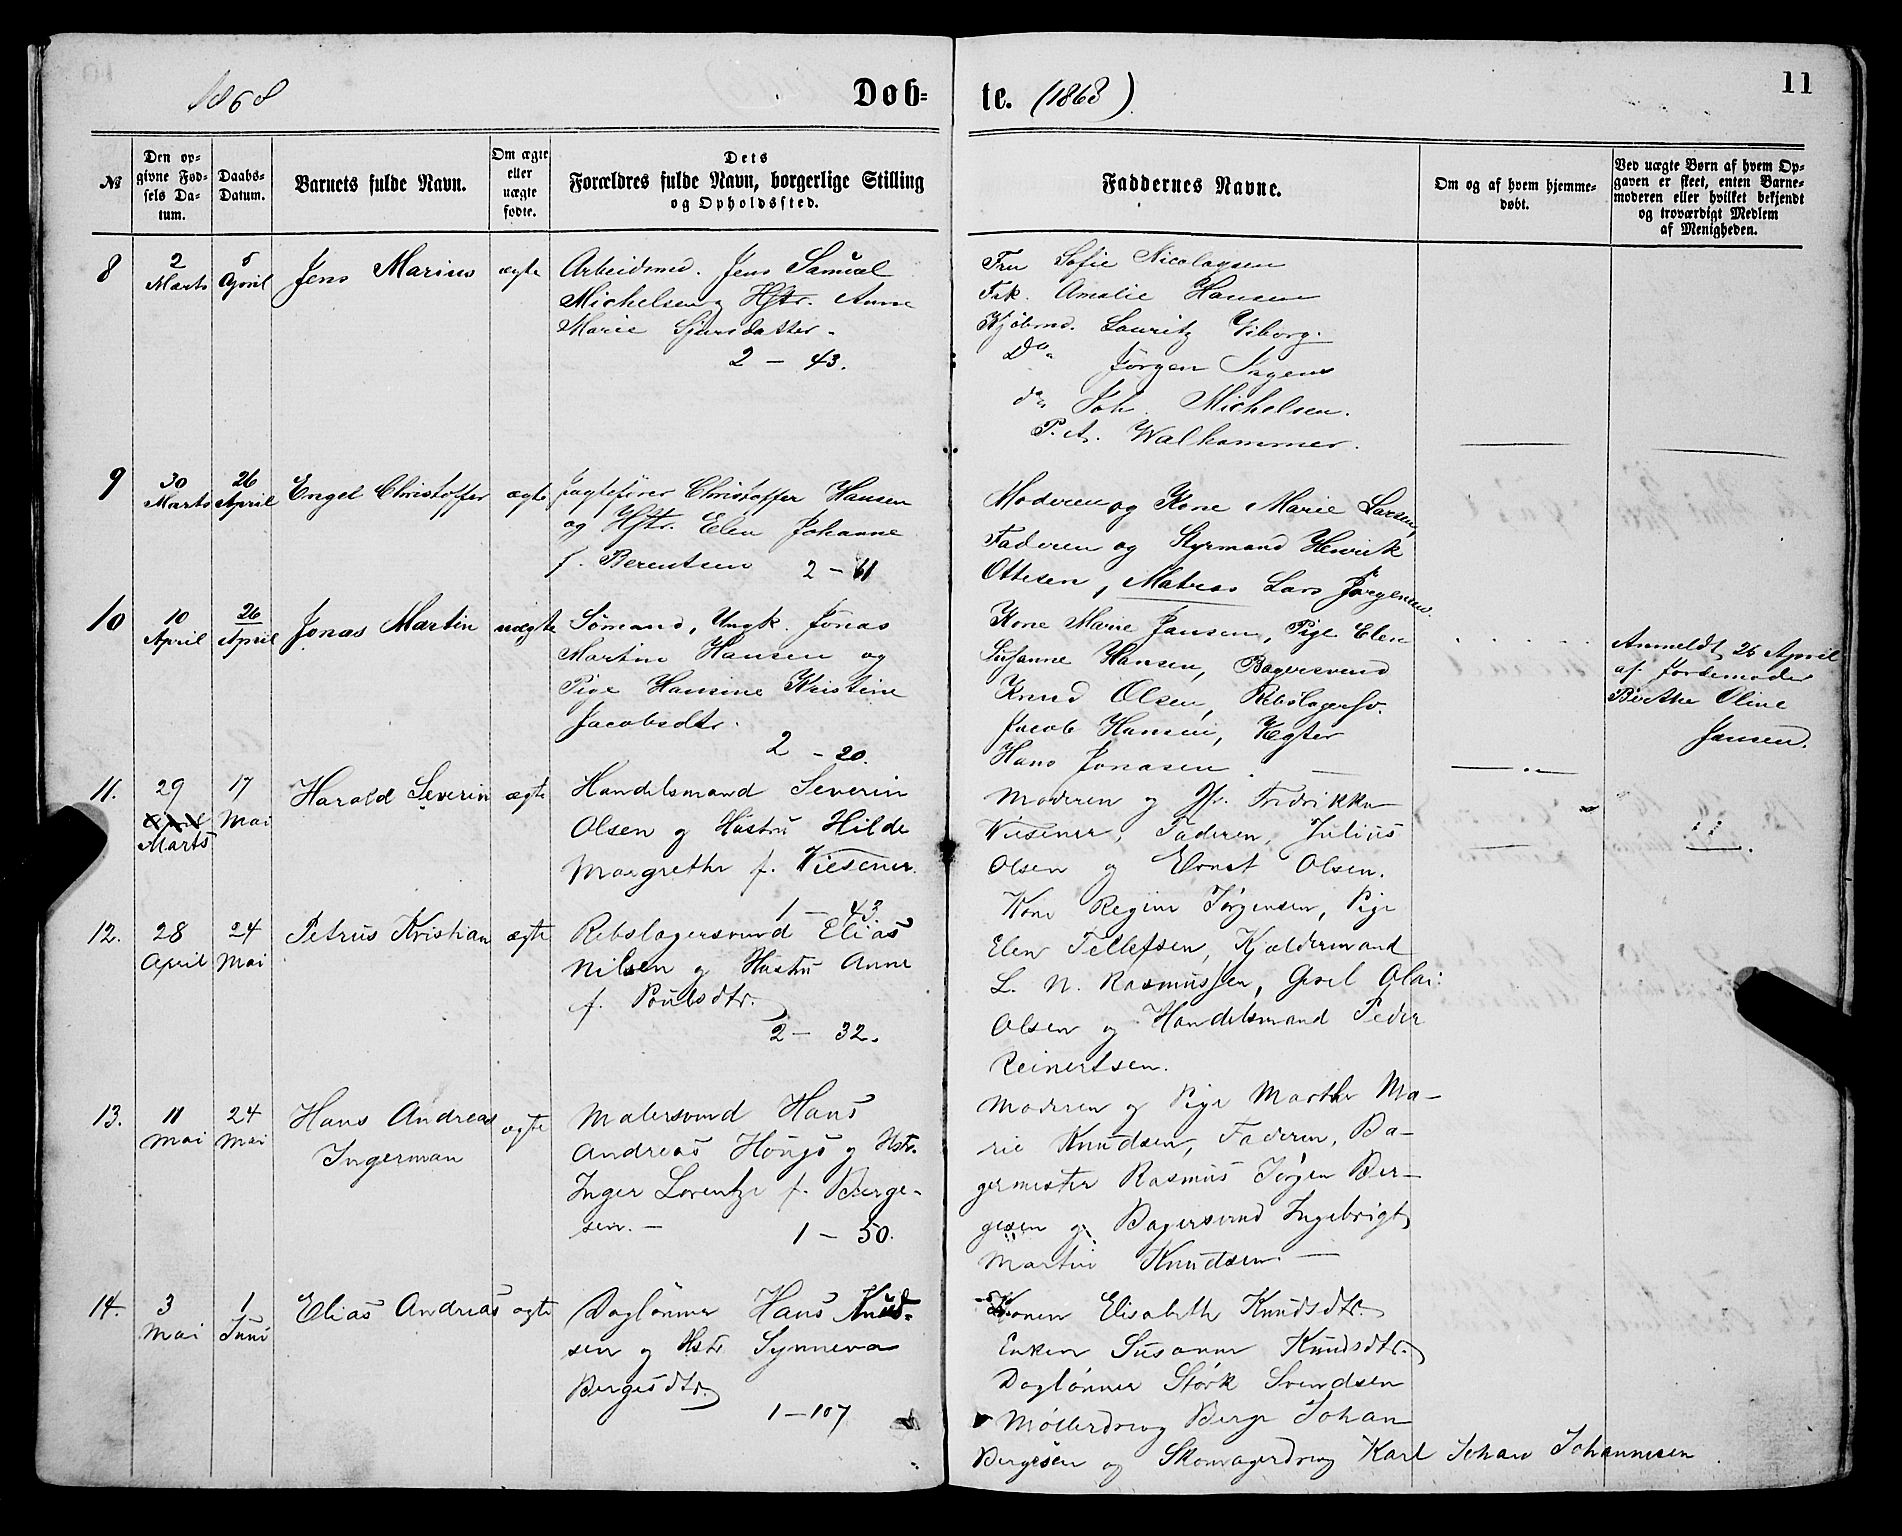 1868
Døb-
te. (1868)
11
№
Den op-
givne Fød-
sels Da-
tum.
Daabs-
Datum.
Barnets fulde Navn.
Om ægte
eller
uægte
fødte.
Dets
Forældres fulde Navn, borgerlige Stilling
og Opholdssted.
Faddernes Navne.
Om og af hvem hjemme-
døbt.
Ved uægte Børn af hvem Op-
gaven er skeet, enten Barne-
moderen eller hvilket bekjendt
og troværdigt Medlem
af Menigheden.
8
2
Marts
5
April
Jens Marius
ægte
Arbeidsmd. Jens Samuel
Michelsen og Hstr. Anne
Marie Sjursdatter.
2 - 43.
Fru Sofie Nicolaysen
Frk. Amalie Hansen
Kjøbmd. Lauritz Wiborg.
Do. Jørgen
do. Joh. Michelsen.
P. A. Walhammer.
9
30
Marts
26
April
Engel Christoffer
ægte
Jagtefører Christoffer Hansen
og Hstr. Elen Johanne
f. Berentsen 2 - 61
Moderen og Kone Marie Larsen,
Faderen og Styrmand Henrik
Ottesen, Matros Lars Jørgensen.
10
10
April
26
April
Jonas Martin
uægte
Sømand, Ungk. Jonas
Martin Hansen og
Pige Hansine Kristine
Jacobsdtr.
2 - 20.
Kone Marie Jansen, Pige Elen
Susanne Hansen, Bagersvend
Knud Olsen, Rebslagersv.
Jacob Hansen,
Hans Jonasen.
Anmeldt 26 April
af Jordemoder
Berthe Oline
Jansen.
11.
29
April
Marts
17
Mai
Harald Severin
ægte
Handelsmand Severin
Olsen og Hustru Hilde
Margrethe f. Wiesener.
1 - 43.
Moderen og Jfr. Fredrikke
Wiesener, Faderen, Julius
Olsen og Ernst Olsen.
11.
12.
28
April
24
Mai
Petrus Kristian
ægte
Rebslagersvend Elias
Nilsen og Hustru Anne
f. Poulsdtr.
2 - 32.
Kone Regine Jørgensen, Pige
Elen Tellefsen, Kjældermand
L. N. Rasmussen, Olai
Olsen og Handelsmand Peder
Reinertsen.
13.
11
Mai
24
Mai
Hans Andreas
Ingerman
ægte
Malersvend Hans
Andreas Hougs og Hstr.
Inger Lorentze f. Berge-
sen. -
1 - 50.
Moderen og Pige Marthe Ma-
rie Knudsen, Faderen, Ba-
germester Rasmus Jørgen Ber-
gesen og Bagersvend Ingebrigt
Martin Knudsen. -
14.
3
Mai
1
Juni
Elias Andreas
ægte
Daglønner Hans Knud-
sen og Hstr. Synneva
Bergesdtr.
1 - 107
Konen Elisabeth Knudsdtr.
Enken Susanne Knudsdtr.
Daglønner Størk Svendsen
Møllerdreng Berge Johan
Bergesen og Skomagerdreng Karl Johan Johannesen